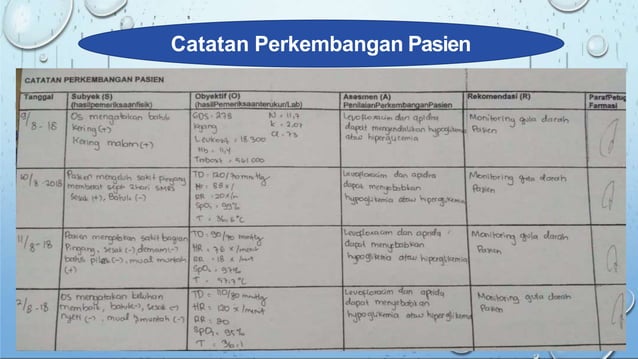 Catatan Perkembangan Pasien
CATATAN PERKEMBANGAN PASIEN
Tanggal
Subyek (S)
(hasilpemeriksaanfisik)
Obyektif (O)
(hasilPemeriksaanterukur/Lab)
Asesmen (A)
PenilaianPerkembanganPasien
Rekomendasi (R)
Farmasi
9/8-18
OS mengatakan batuk
kering (+)
Kering malam (+)
GDS: 278
N = 11,7
K = 2.07
Cl = 73
Leukosit = 18.300
Hb = 11,4
Trobosit = 561.000
Levofloxacin dan apidra
dapat
hypoglikemia
atau hiperglikemia
Monitoring gula darah
Pasien
10/8-2018
Pasien mengeluh sakit pinggang
memberat sejak 2 hari SMRS
Sesak (+), Batuk (-)
TD: 120/70 mmHg
HR: 88 x/
RR = 20 x/m
SpO2 = 99%
T = 36.6°C
Levofloxacin dan apidra
dapat menyebabkan
hypoglikemia atau hiperglikemia
Monitoring gula darah
Pasien
11/8-18
Pasien mengatakan sakit bagian
Pinggang, sesak (-), demam (-)
batuk pilek (-), mual muntah
(+)
TD: 90/70 mmHg
HR = 76 x/menit
RR = 18 x/menit
SpO2 = 97%
T = 37.7°C
Levofloxacin dan apidra
dapat menyebabkan
hipoglikemia atau hiperglikemia
Monitoring gula darah
Pasien
2/8-18
OS mengatakan keluhan
membaik, batuk (-), sesak (-)
nyeri (-), mual & muntah (-)
TD = 110/80 mmHg
HR = 120 x/menit
RR = 20
SpO2 = 95%
T = 36.1
Levofloxacin dan apidra
dapat menyebabkan
hypoglikemia atau hiperglikemia
Monitoring gula darah
Pasien